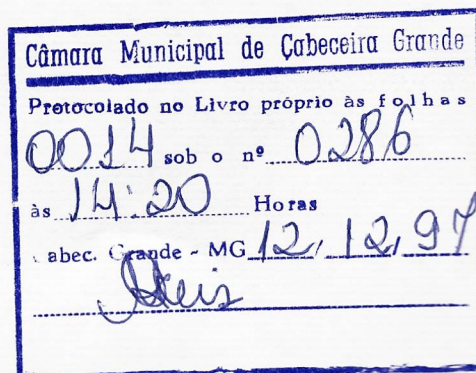 Câmara Municipal de Cabeceira Grande
Protocolado no Livro próprio às folhas
0014 sob o nº 0286
às 14:20 Horas
abec. Grande - MG 12, 12, 97